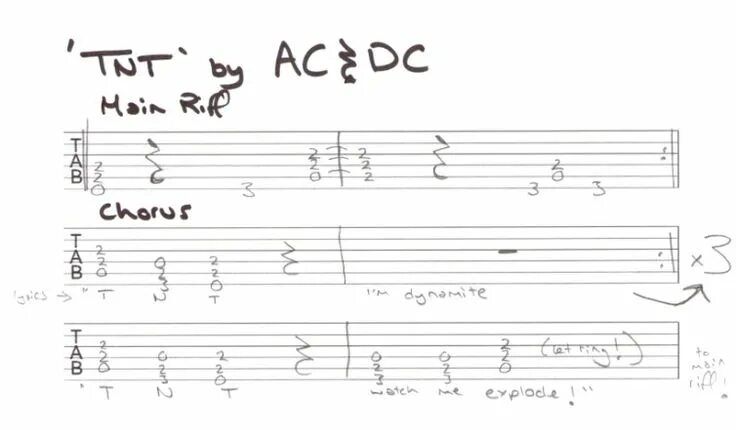 'TNT' by AC DC
Main Riff
T
A 2 2
2 2 2 2
B 2 0 2 0
0 3 3 3
Chorus
T
2
A 2 0 2
B 0 2 2
3 0
x3
lyrics → "T N T "I'm dynamite
T
2 2 (let ring!)
A 2 0 2 0 0 2
B 0 2 2 2 2 0
3 0 3 3
"T N T watch me explode!"
to
main
riff!